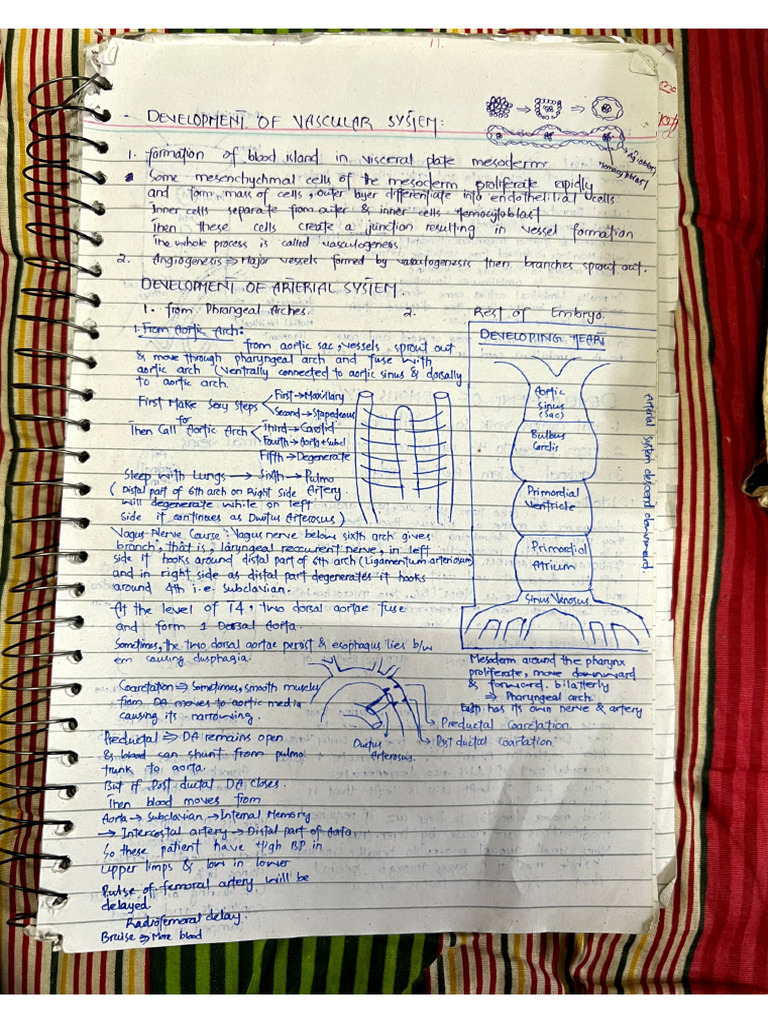 DEVELOPMENT OF VASCULAR SYSTEM:
Angioblast
Hemocytoblast
1. Formation of blood island in visceral plate mesoderm
Some mesenchymal cells of the mesoderm proliferate rapidly
and form mass of cells, outer layer differentiate into endothelial cells.
Inner cells separate from outer & inner cells Hemocytoblast
Then these cells create a junction resulting in vessel formation
The whole process is called vasculogenesis.
2. Angiogenesis ⇒ Major vessels formed by vasculogenesis then branches sprout out.
DEVELOPMENT OF ARTERIAL SYSTEM.
1. from Phrangeal Arches. 2. Rest of Embryo
1. From Aortic Arch:
from aortic sac, vessels sprout out
& move through pharyngeal arch and fuse with
aortic arch (ventrally connected to aortic sinus & dorsally
to aortic arch.
First Make Sexy Steps
for
Then Call Aortic Arch
First → Maxillary
Second → Stapedeous
Third → Carotid
Fourth → Aorta + Subcl
Fifth → Degenerate
Sleep with Lungs → Sixth → Pulmo
Artery.
( Distal part of 6th arch on Right Side
will degenerate while on left
side it continues as Ductus Arterosus )
Vagus Nerve Course: Vagus nerve below sixth arch gives
branch, that is, laryngeal reccurent nerve, in left
side it hooks around distal part of 6th arch (Ligamentum arteriosum)
and in right side as distal part degenerates it hooks
around 4th i.e. subclavian.
At the level of T4, two dorsal aortae fuse
and form 1 Dorsal Aorta.
Sometimes, the two dorsal aortae persist & esophagus lies b/w
em causing dysphagia.
Coarctation ⇒ Sometimes, smooth muscles
from DA moves to aortic media
causing its narrowing.
Preductal ⇒ DA remains open
& blood can shunt from pulmo
trunk to aorta.
But if Post ductal DA closes.
Then blood moves from
Aorta → Subclavian → Internal Memory
→ Intercostal artery → Distal part of Aorta
So these patient have High BP in
upper limps & low in lower
Pulse of femoral artery will be
delayed.
Radiofemoral delay.
Bruise ⇒ More blood
Ductus
Arterosus.
Preductal Coarctation
Post ductal coartation
DEVELOPING HEART
Aortic
Sinus
(Sac)
Bulbus
Cordis
Primordial
Ventricle
Primordial
Atrium
Sinus Venosus
Arterial system descend downward.
Mesoderm around the pharynx
proliferate, move downward
& forward. bilatterly
⇒ Pharyngeal arch
Each has its own nerve & artery